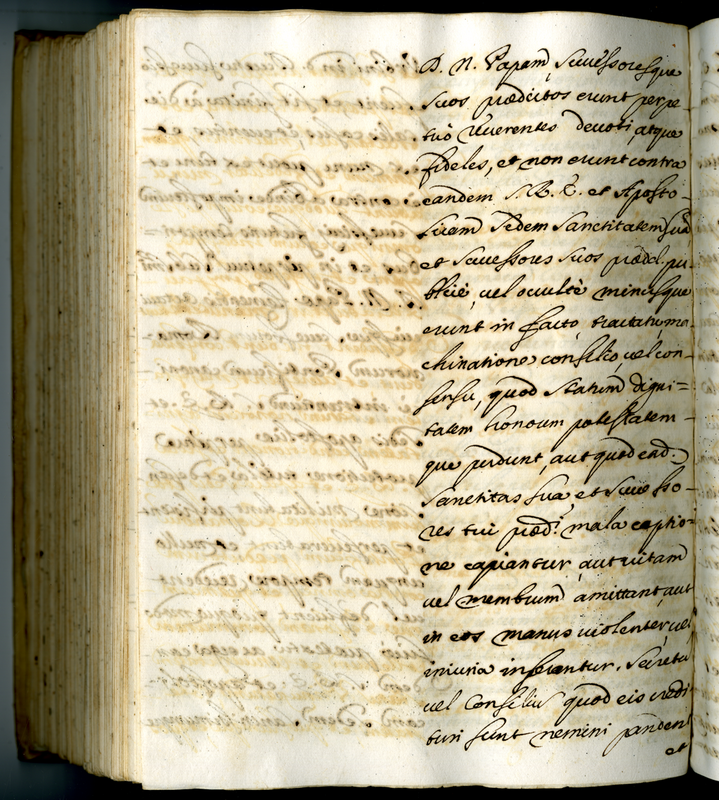 D. N. Papam, Successoresque
suos prædictos erunt perpe
tuò reverentes devoti, atque
fideles, et non erunt contra
eandem S. R. E. et Aposto-
licam Sedem Sanctitatem suā
et successores suos præd. pu-
blicè, vel occultè minusque
erunt in facto, tractatu, ma-
chinatione consilio, vel con-
sensu, quod statum digni=
tatem honorum potestatem-
que perdunt, aut quod ead.
Sanctitas sua, et Successo-
res sui præd. mala captio-
ne capiantur, aut vitam
vel membrum amittant, aut
in eos manus violenter, vel
iniuria inferantur. Secretū
vel Consiliū quod eis credi-
turi sunt nemini pandent
et